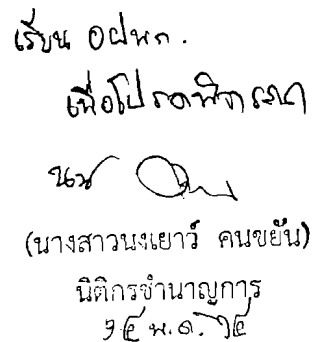 เรียน อฝหก.
เพื่อโปรดพิจารณา
(นางสาวนงเยาว์ คนขยัน)
นิติกรชำนาญการ
๒๔ พ.ค. ๖๔